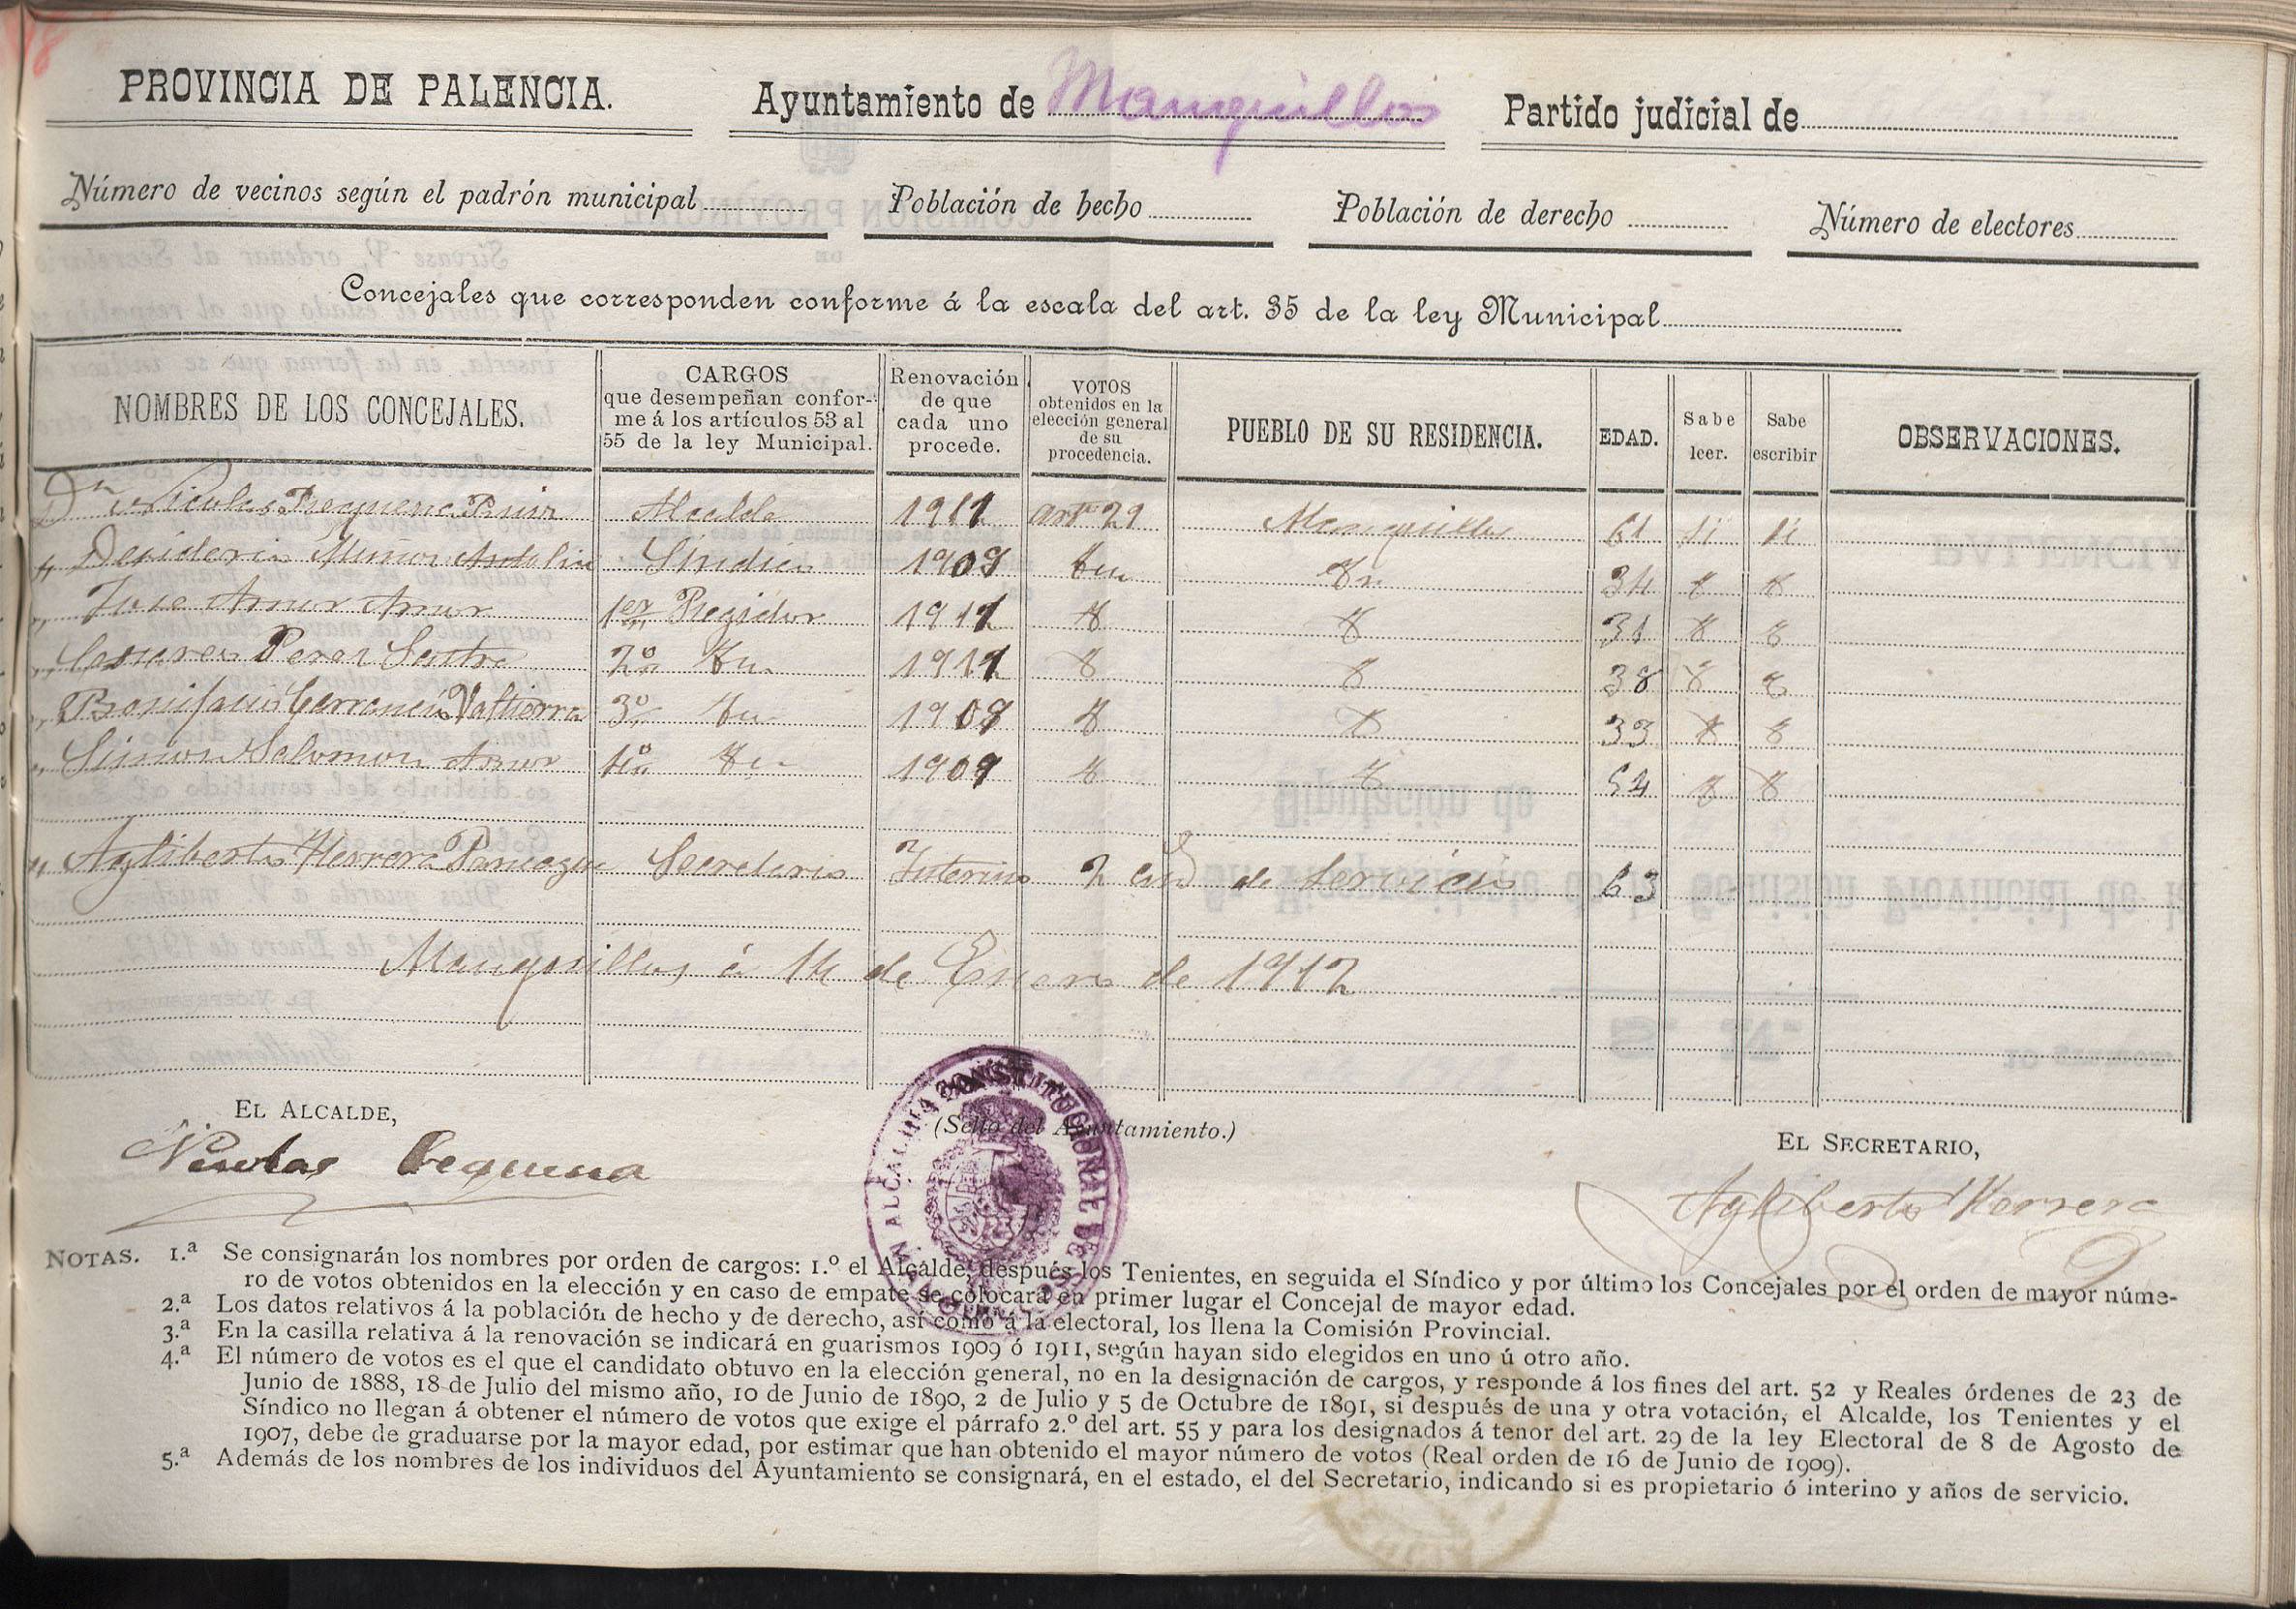 PROVINCIA DE PALENCIA. Ayuntamiento de Manquillos Partido judicial de
Número de vecinos según el padrón municipal Población de hecho Población de derecho Número de electores
Concejales que corresponden conforme á la escala del art. 35 de la ley Municipal
NOMBRES DE LOS CONCEJALES. CARGOS que desempeñan confor- me á los artículos 53 al 55 de la ley Municipal. Renovación de que cada uno procede. VOTOS obtenidos en la elección general de su procedencia. PUEBLO DE SU RESIDENCIA. EDAD. Sabe leer. Sabe escribir OBSERVACIONES.
Dn Nicolas Requena Ruiz Alcalde 1911 artº 29 Manquillos 61 si si
" Desiderio Muñoz Antolin Sindico 1909 34
" Jose Amor Amor 1er Regidor 1911 31
" Cesareo Perez Santos 2º 1911 38
" Bonifacio Carrancio Valtierra 3º 1909 33
" Simon Salomon Amor 4º 1909 54
" Agliberto Herrera Secretario Interino 2 de Servicio 63
Manquillos á 14 de Enero de 1912
EL ALCALDE,
Nicolas Requena
(Sello del Ayuntamiento.)
ALCALDIA CONSTITUCIONAL DE MANQUILLOS
EL SECRETARIO,
Agliberto Herrera
NOTAS. 1.ª Se consignarán los nombres por orden de cargos: 1.º el Alcalde, después los Tenientes, en seguida el Síndico y por último los Concejales por el orden de mayor núme-
ro de votos obtenidos en la elección y en caso de empate se colocará en primer lugar el Concejal de mayor edad.
2.ª Los datos relativos á la población de hecho y de derecho, así como á la electoral, los llena la Comisión Provincial.
3.ª En la casilla relativa á la renovación se indicará en guarismos 1909 ó 1911, según hayan sido elegidos en uno ú otro año.
4.ª El número de votos es el que el candidato obtuvo en la elección general, no en la designación de cargos, y responde á los fines del art. 52 y Reales órdenes de 23 de
Junio de 1888, 18 de Julio del mismo año, 10 de Junio de 1890, 2 de Julio y 5 de Octubre de 1891, si después de una y otra votación, el Alcalde, los Tenientes y el
Síndico no llegan á obtener el número de votos que exige el párrafo 2.º del art. 55 y para los designados á tenor del art. 29 de la ley Electoral de 8 de Agosto de
1907, debe de graduarse por la mayor edad, por estimar que han obtenido el mayor número de votos (Real orden de 16 de Junio de 1909).
5.ª Además de los nombres de los individuos del Ayuntamiento se consignará, en el estado, el del Secretario, indicando si es propietario ó interino y años de servicio.